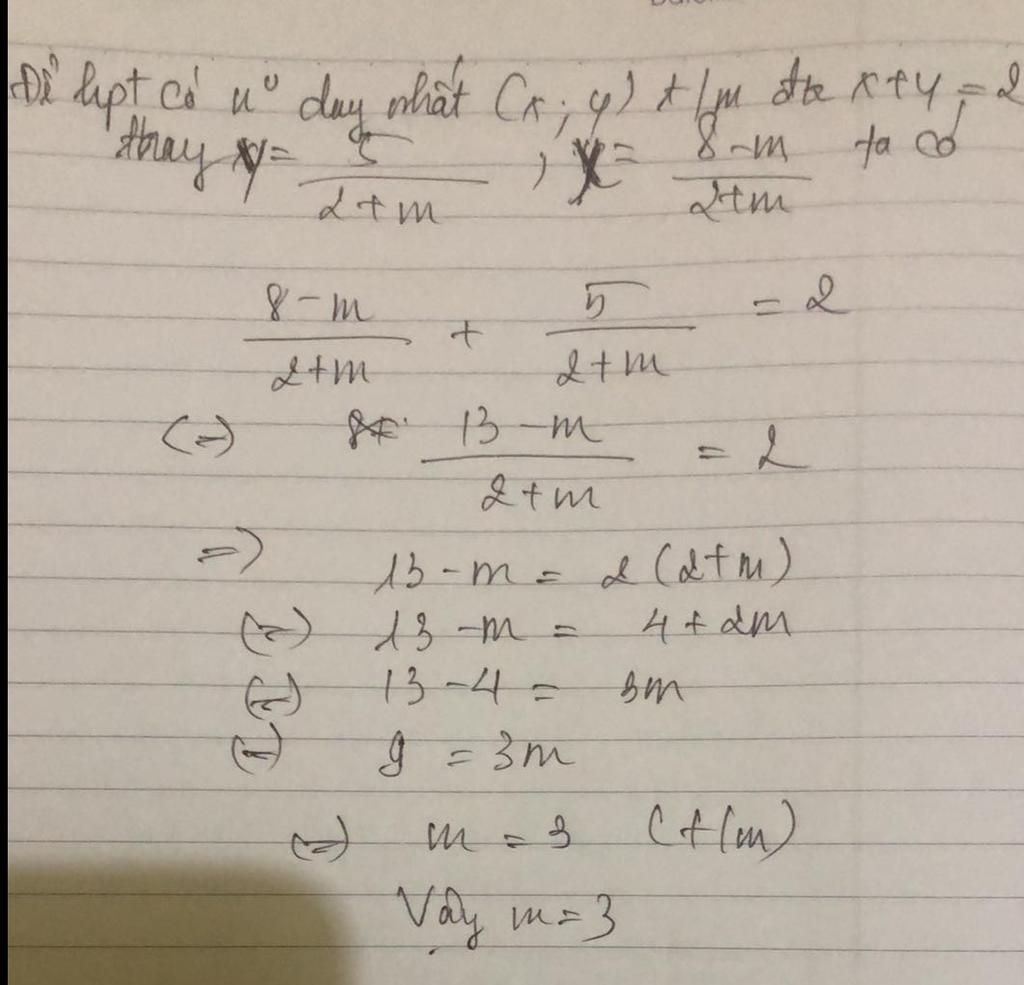 Để hpt có nº duy nhất (x; y) t/m đk x+y=2
thay y = 5/(2+m) , x = (8-m)/(2+m) ta có
(8-m)/(2+m) + 5/(2+m) = 2
(=) (13-m)/(2+m) = 2
=) 13-m = 2(2+m)
(=) 13-m = 4+2m
(=) 13-4 = 3m
(=) 9 = 3m
(=) m = 3 (t/m)
Vậy m=3